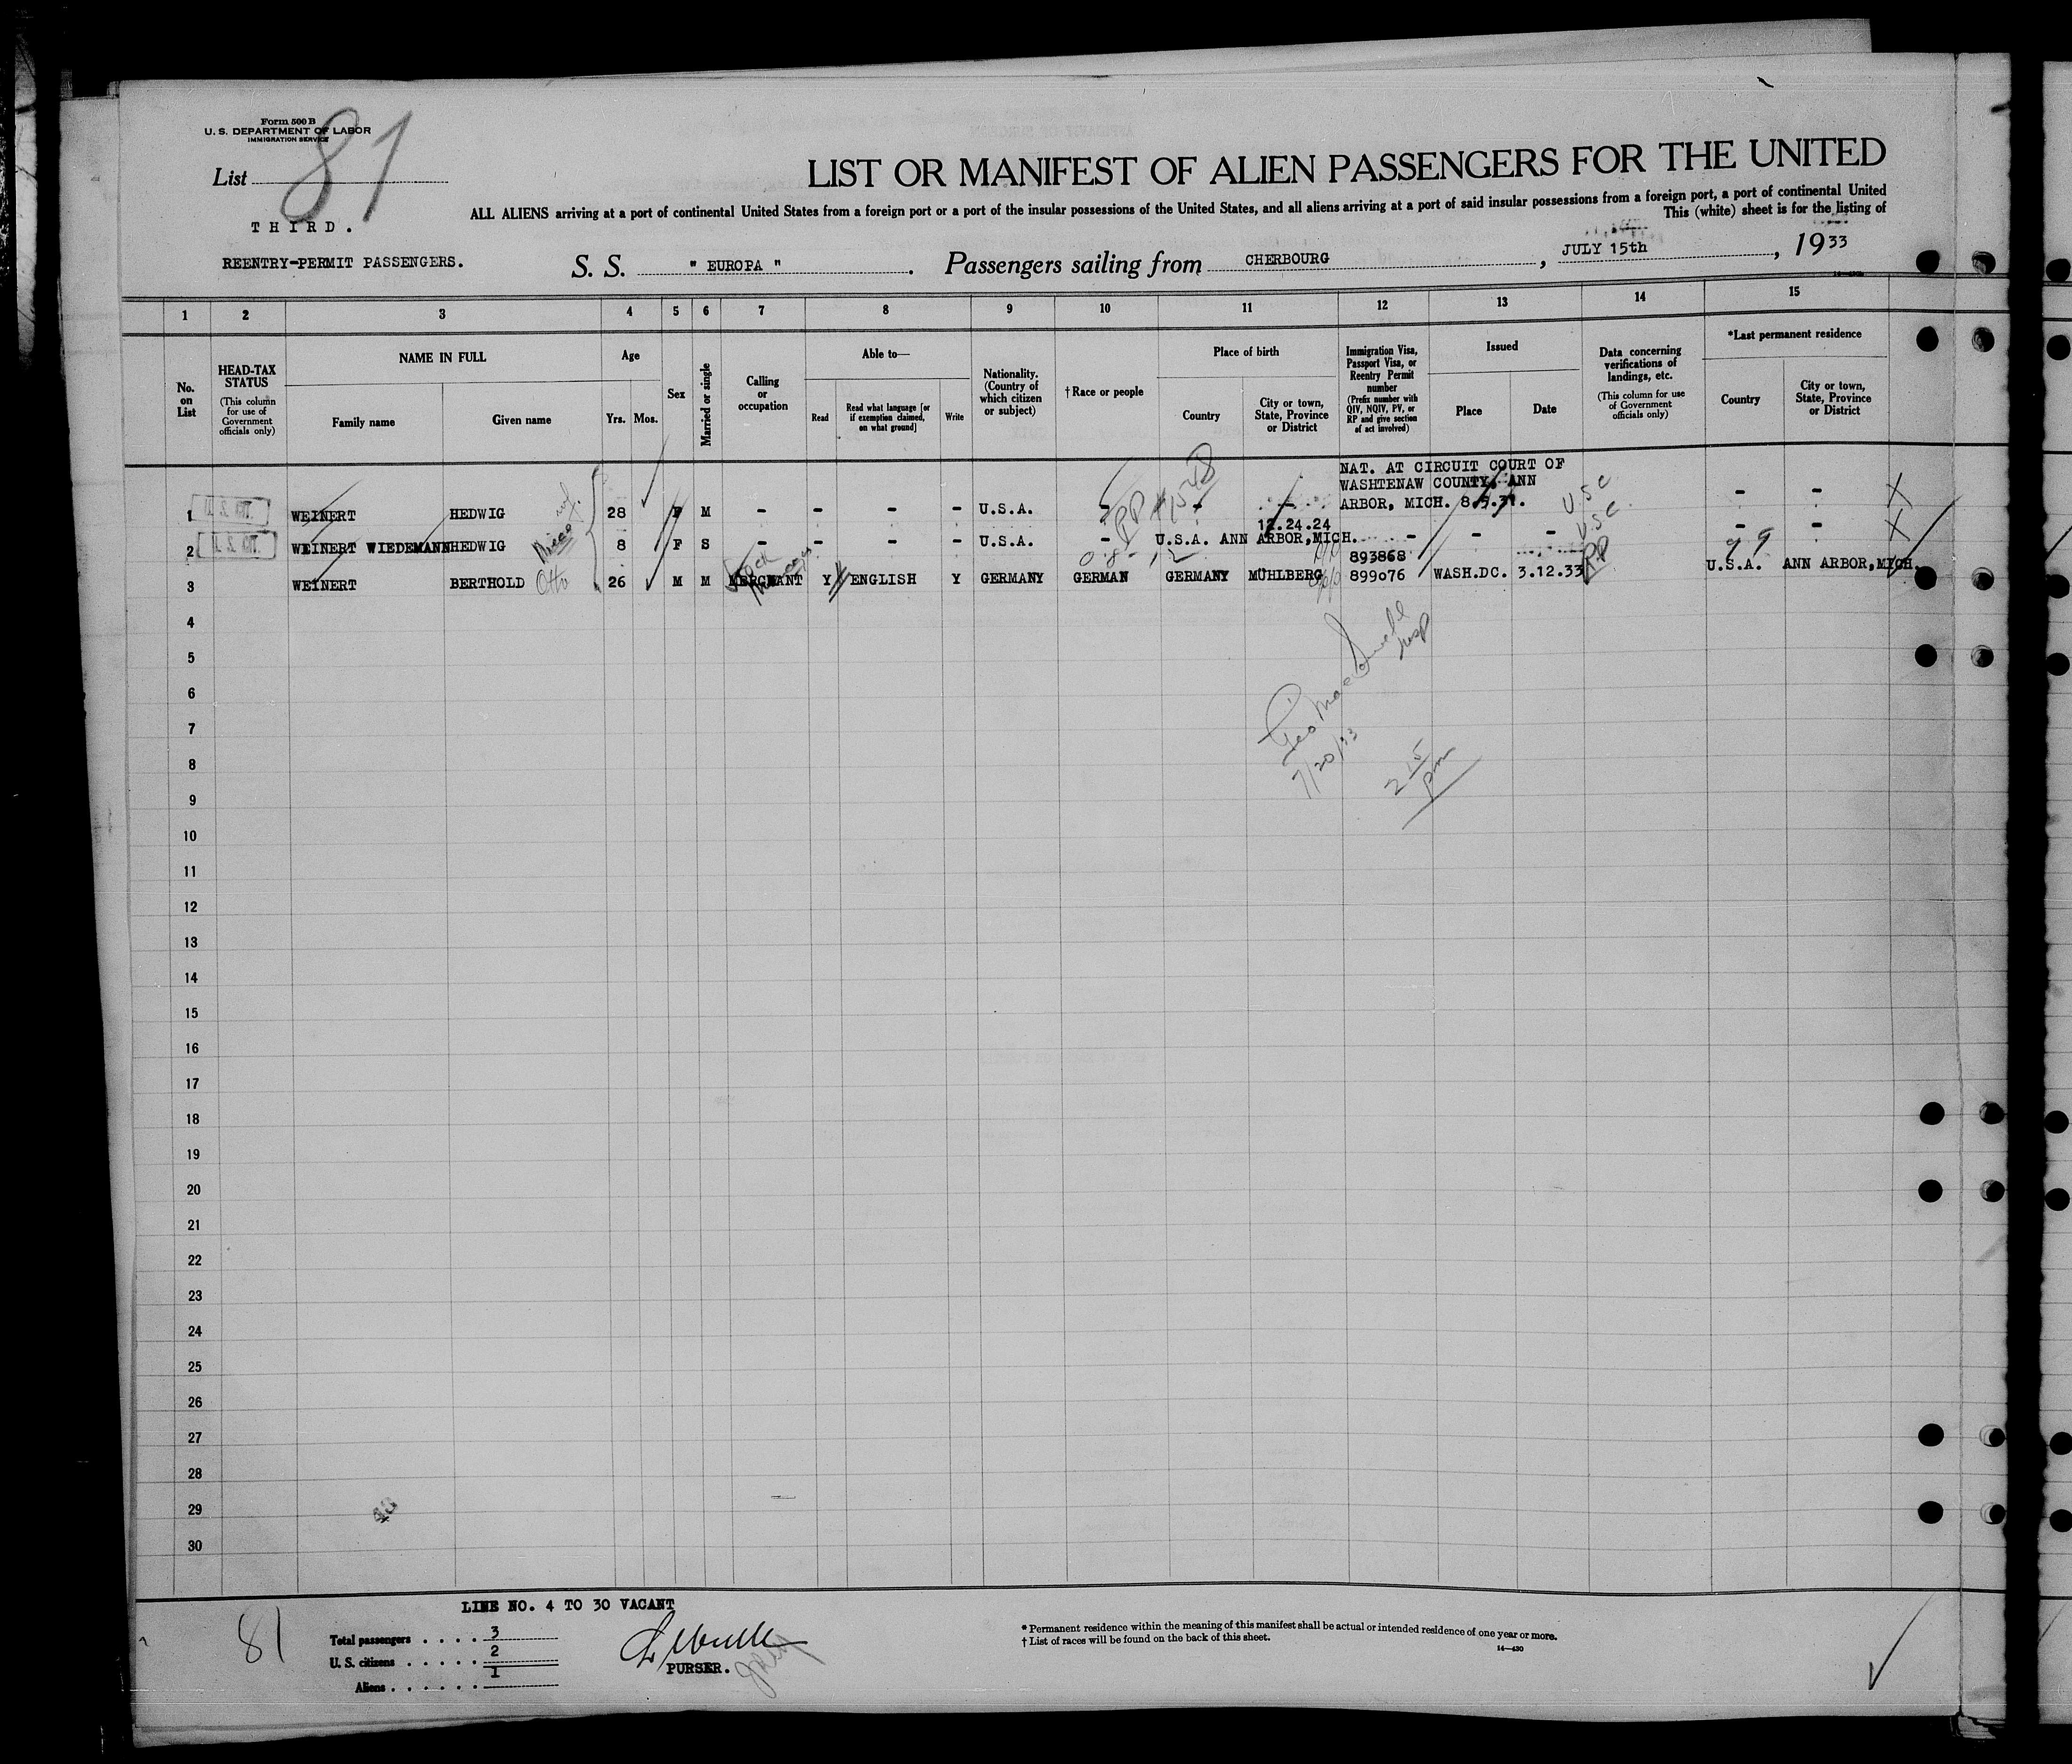 Form 500 B
U. S. DEPARTMENT OF LABOR
IMMIGRATION SERVICE
List 81
THIRD.
REENTRY-PERMIT PASSENGERS.
LIST OR MANIFEST OF ALIEN PASSENGERS FOR THE UNITED
ALL ALIENS arriving at a port of continental United States from a foreign port or a port of the insular possessions of the United States, and all aliens arriving at a port of said insular possessions from a foreign port, a port of continental United
This (white) sheet is for the listing of
S. S. " EUROPA ". Passengers sailing from CHERBOURG, JULY 15th, 1933
1 2 3 4 5 6 7 8 9 10 11 12 13 14 15
No. on List
HEAD-TAX STATUS (This column for use of Government officials only)
NAME IN FULL
Family name Given name
Age
Yrs. Mos.
Sex
Married or single
Calling or occupation
Able to—
Read Read what language [or if exemption claimed, on what ground] Write
Nationality. (Country of which citizen or subject)
†Race or people
Place of birth
Country City or town, State, Province or District
Immigration Visa, Passport Visa, or Reentry Permit number (Prefix number with QIV, NQIV, PV, or RP and give section of act involved)
Issued
Place Date
Data concerning verifications of landings, etc. (This column for use of Government officials only)
*Last permanent residence
Country City or town, State, Province or District
NAT. AT CIRCUIT COURT OF
WASHTENAW COUNTY. ANN
1 U. S. CIT. WEINERT HEDWIG 28 F M - - - - U.S.A. - - - ARBOR, MICH. 8.5.31. USC - -
RP #1548
12.24.24
2 U. S. CIT. WEINERT WIEDEMANN HEDWIG 8 F S - - - - U.S.A. - U.S.A. ANN ARBOR,MICH. - - - USC - -
893868
3 WEINERT BERTHOLD Otto 26 M M MERCHANT Y ENGLISH Y GERMANY GERMAN GERMANY MÜHLBERG 899076 WASH.DC. 3.12.33 RP U.S.A. ANN ARBOR,MICH.
4
5
6
7
8
9
10
11
12
13
14
15
16
17
18
19
20
21
22
23
24
25
26
27
28
29
30
7/20/33
2 15 pm
LINE NO. 4 TO 30 VACANT
81
Total passengers . . . . 3
U. S. citizens . . . . . 2
Aliens . . . . . . 1
PURSER.
* Permanent residence within the meaning of this manifest shall be actual or intended residence of one year or more.
† List of races will be found on the back of this sheet.
14—430